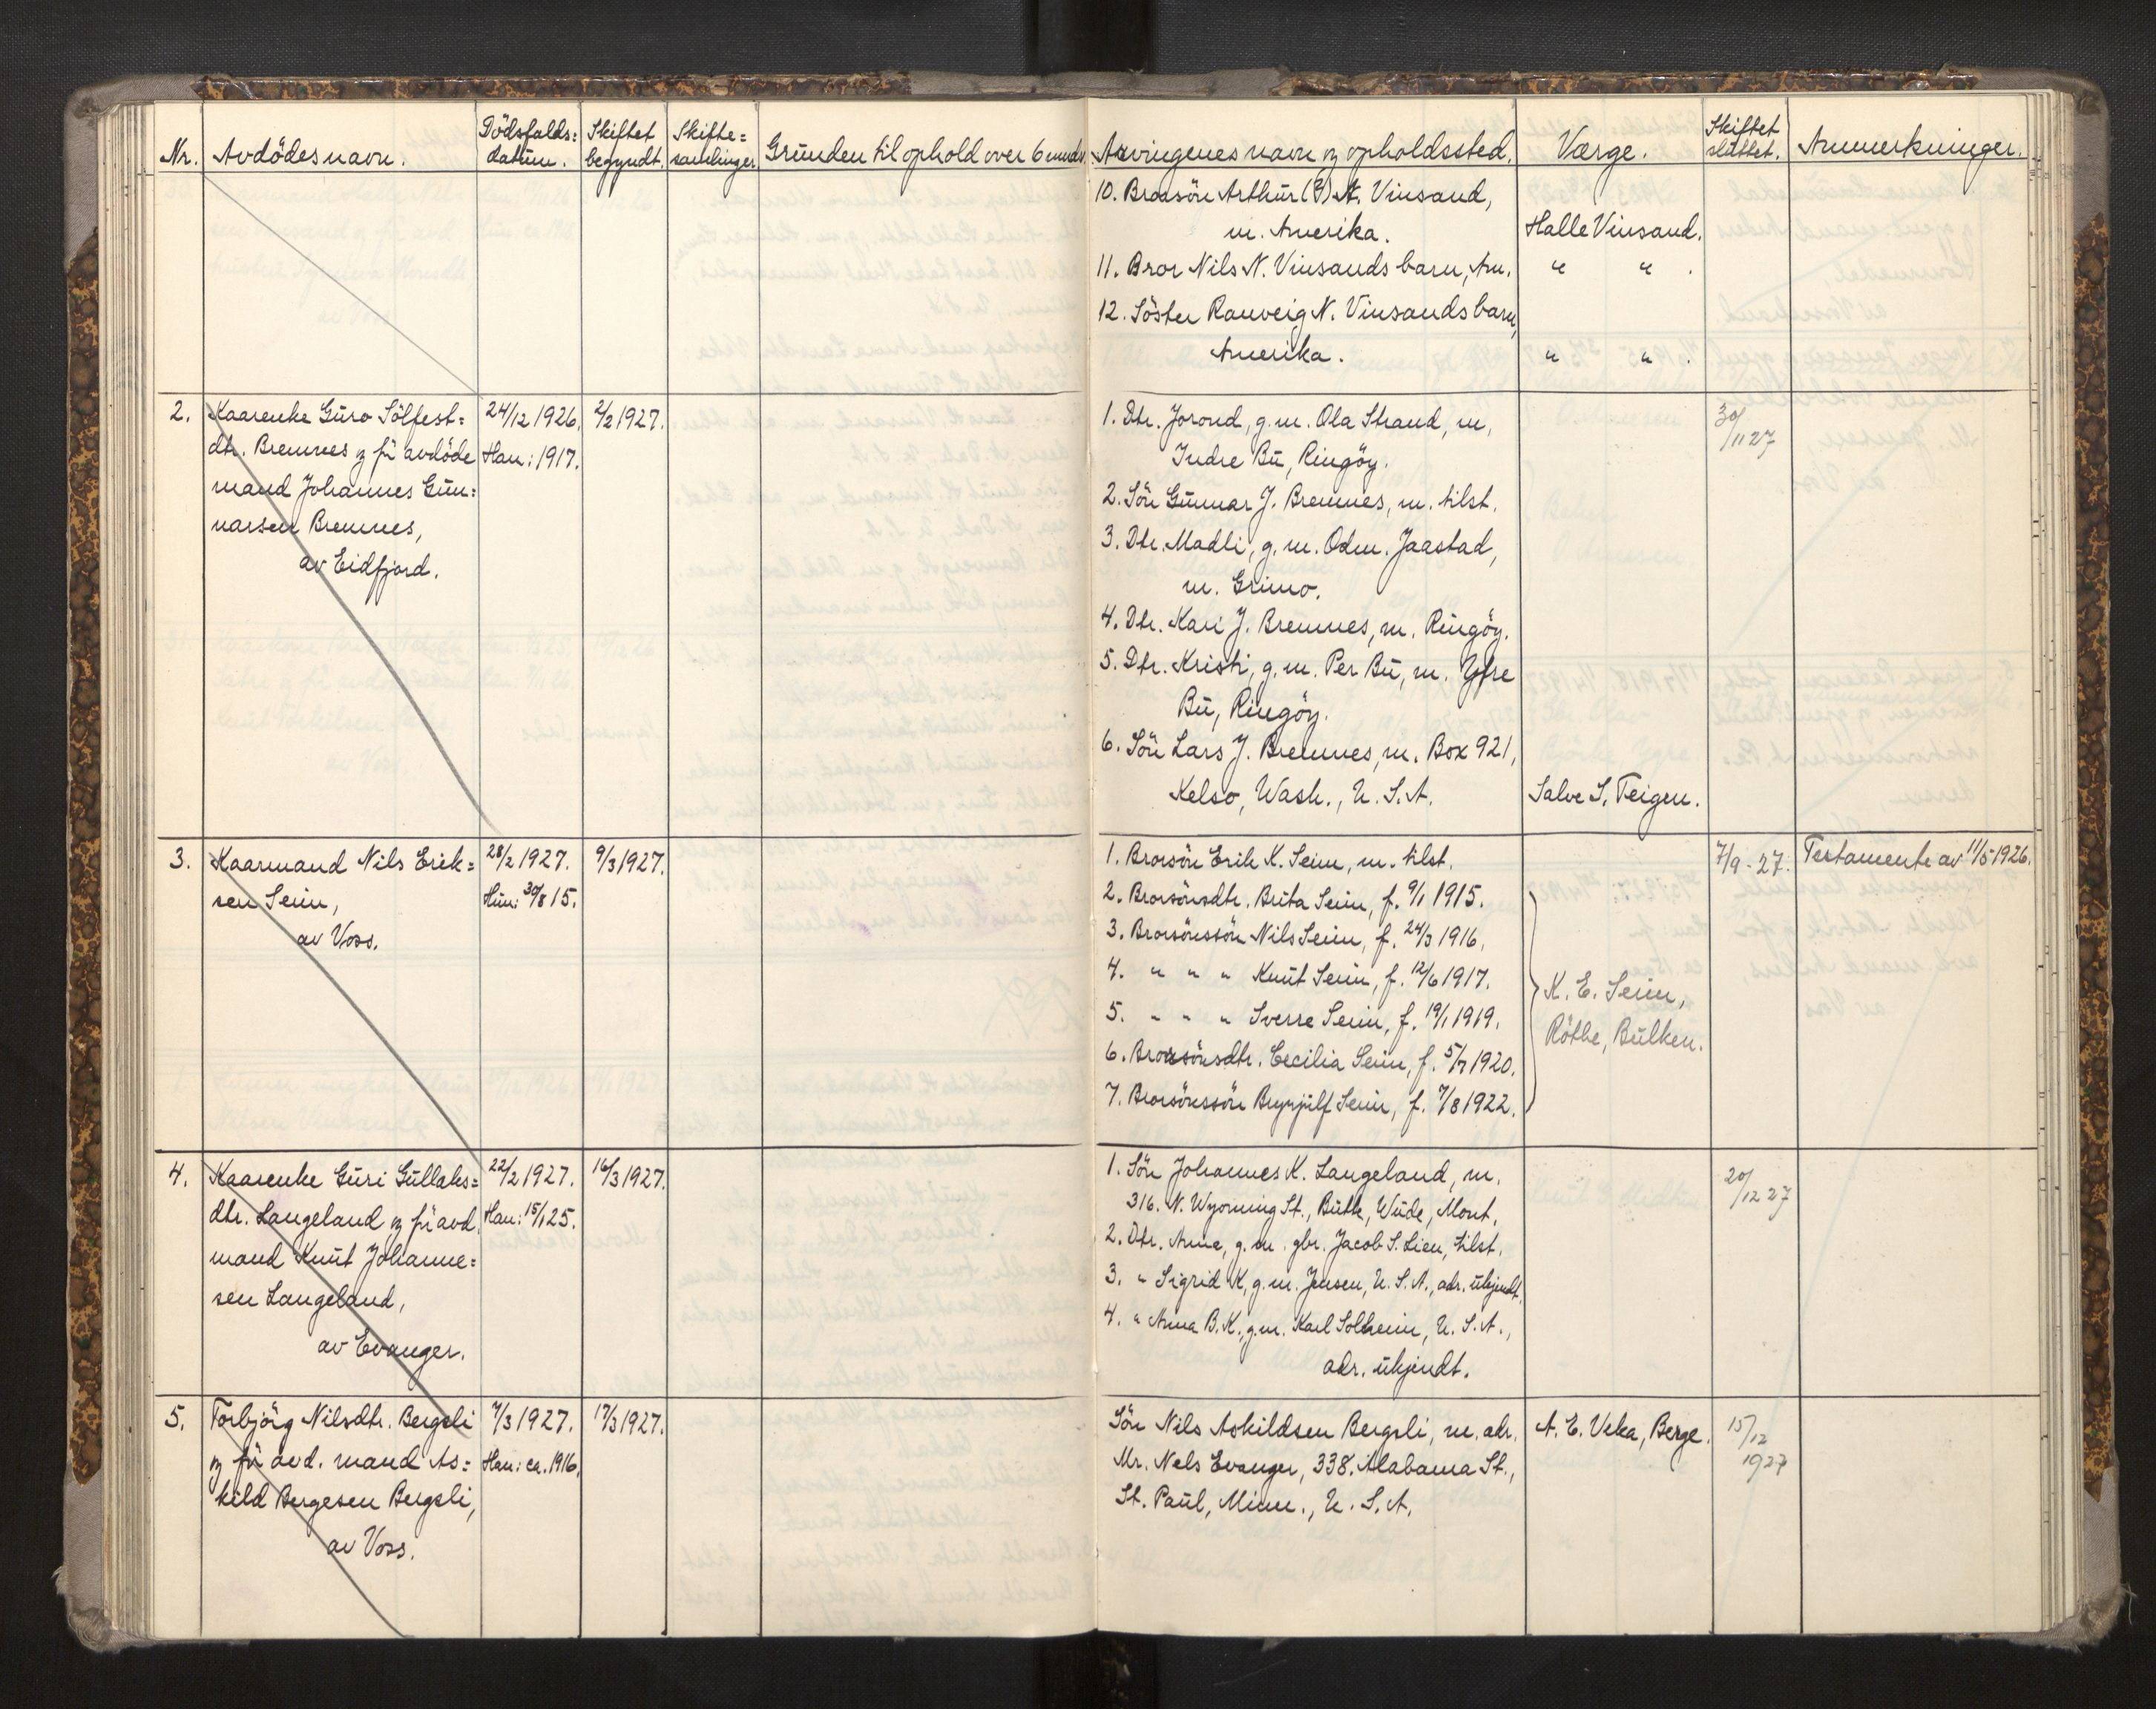 Nr. Avdödes navn. Dödsfalds= datum. Skiftet begyndt. Skifte= samlinger. Grunden til ophold over 6 mnds. Arvingenes navn og opholdssted. Værge. Skiftet sluttet. Anmerkninger.
10. Brorsön Arthur (?) A. Vinsand,
m. Amerika. Halle Vinsand.
11. Bror Nils N. Vinsands barn, Am. " " .
12. Söster Ranveig N. Vinsands barn,
Amerika. " " .
2. Kaarenke Guro Sölfest= 24/12 1926. 2/2 1927.
dtr. Bremnes og för avdöde Han: 1917.
mand Johannes Gun=
narsen Bremnes,
av Eidfjord.
1. Dtr. Jorond, g. m. Ola Strand, m, 30/11 27
Indre Bu, Ringöy.
2. Sön Gunnar J. Bremnes, m. tilst.
3. Dtr. Madli, g. m. Odm. Jaastad,
m. Grimo.
4. Dtr. Kari J. Bremnes, m. Ringöy.
5. Dtr. Kristi, g. m. Per Bu, m. Ytre
Bu, Ringöy.
6. Sön Lars J. Bremnes, m. Box 921,
Kelso, Wash., U. S. A. Salve S. Teigen.
3. Kaarmand Nils Erik= 28/2 1927. 9/3 1927.
sen Seim, Hun: 30/8 15.
av Voss.
1. Brorsön Erik K. Seim, m. tilst. 7/9 - 27. Testamente av 11/5 1926.
2. Brorsönsdtr. Brita Seim, f. 9/1 1915.
3. Brorsönssön Nils Seim, f. 24/3 1916.
4. " " " Knut Seim, f. 12/6 1917.
5. " " " Sverre Seim, f. 19/1 1919.
6. Brorsönsdtr. Cecilia Seim, f. 5/7 1920.
7. Brorsönssön Brynjulf Seim, f. 7/8 1922.
K. E. Seim,
Röthe, Bulken.
4. Kaarenke Guri Gullaks= 22/2 1927. 16/3 1927.
dtr. Langeland og för avd. Han: 15/1 25.
mand Knut Johanne=
sen Langeland,
av Evanger.
1. Sön Johannes K. Langeland, m. 20/12 27
316. N. Wyoming St., Butte, Wude, Mont.
2. Dtr. Anna, g. m. gbr. Jacob S. Lien, tilst.
3. " Sigrid K, g. m. Jensen, U. S. A., adr. ukjendt.
4. " Anna B. K., g. m. Karl Solheim, U. S. A.,
adr. ukjendt.
5. Torbjörg Nilsdtr. Bergsli 7/3 1927. 17/3 1927.
og för avd. mand As= Han: ca. 1916.
kild Bergesen Bergsli,
av Voss.
Sön Nils Askildsen Bergsli, m. adr. A. E. Veka, Berge. 15/12 1927
Mr. Nels Evanger, 338. Alabama St.,
St. Paul, Minn., U. S. A.